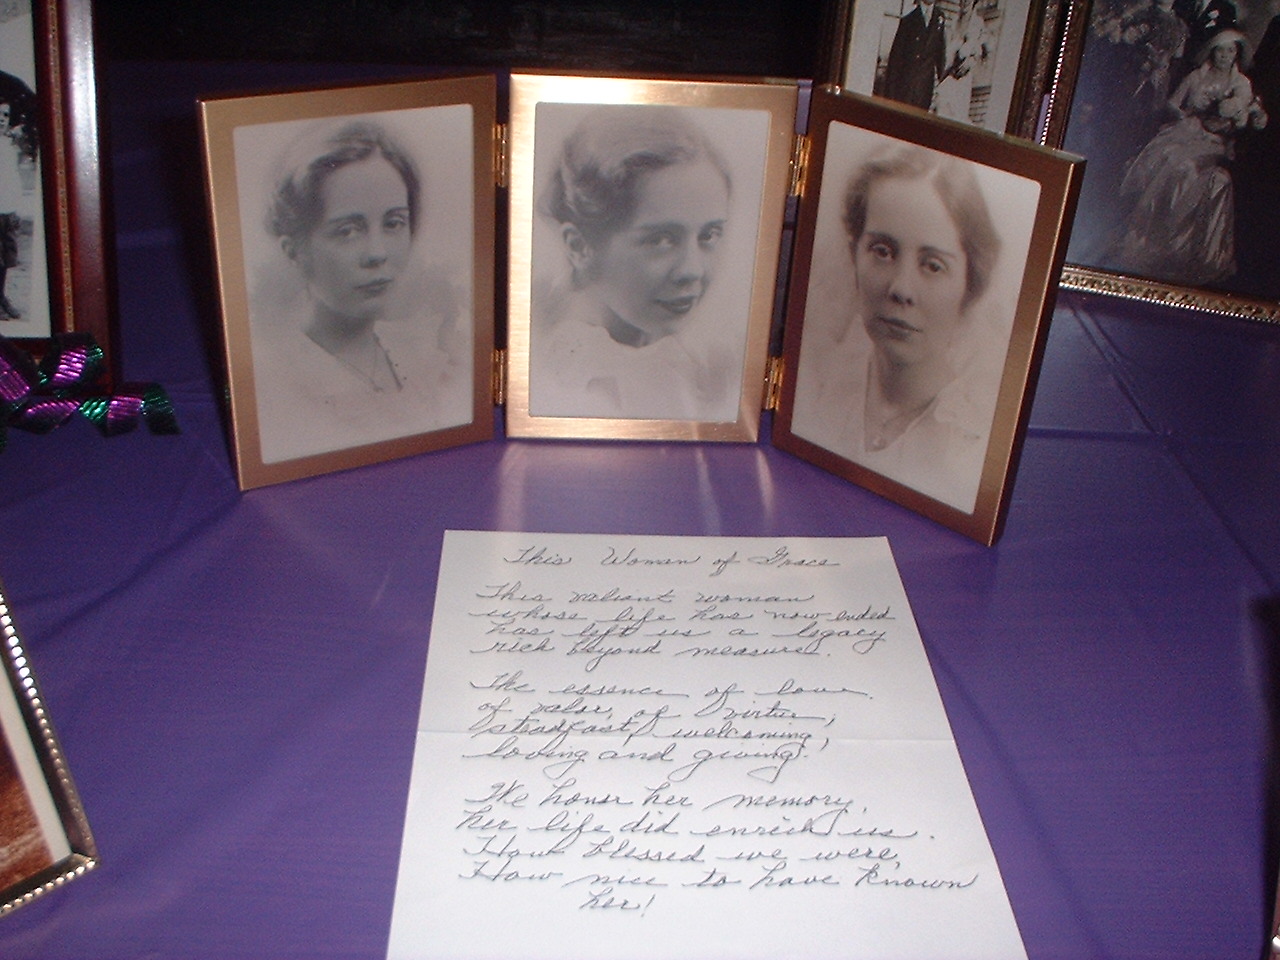 This Woman of Grace
This valient woman
whose life has now ended
has left us a legacy
rich beyond measure.
The essence of love,
of valor, of virtue,
steadfast, welcoming,
loving and giving.
We honor her memory,
her life did enrich us.
How blessed we were,
How nice to have known
her!